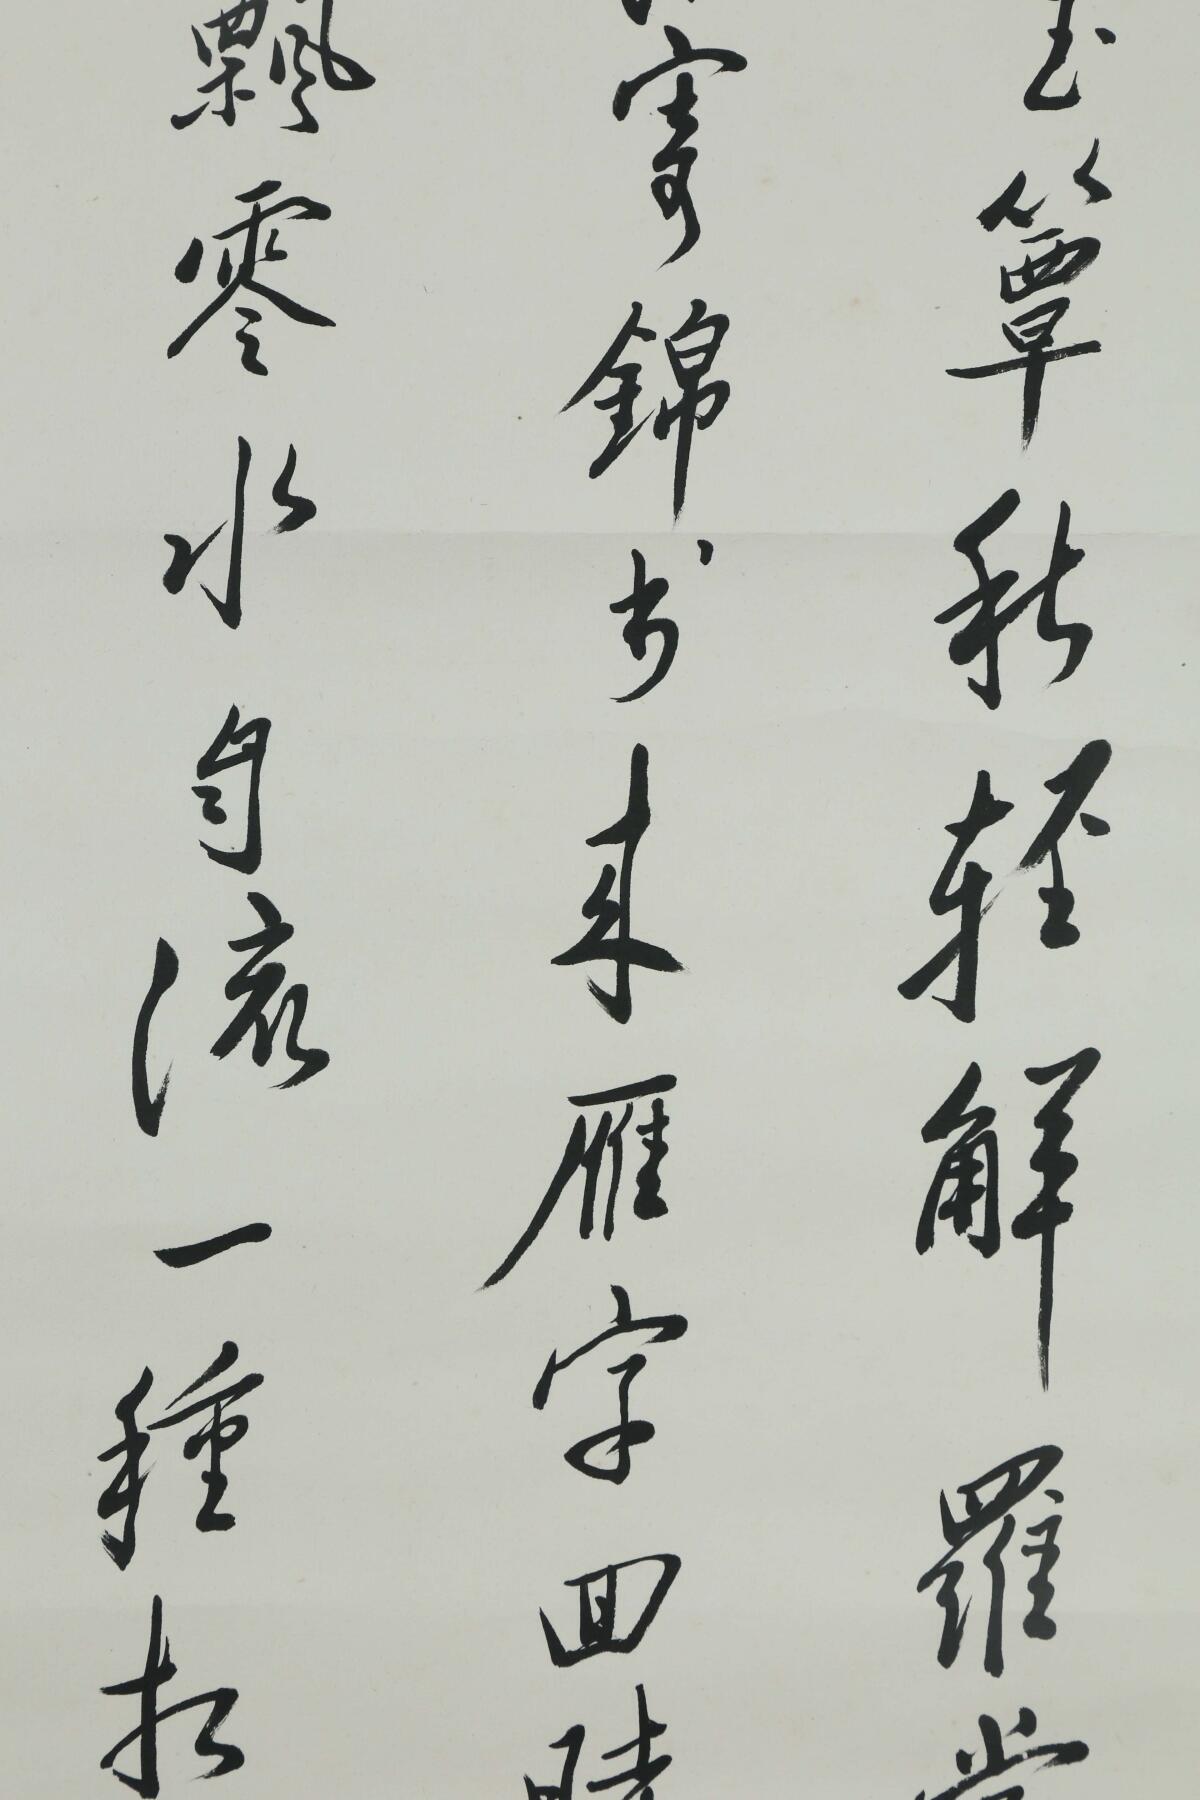 玉簟秋輕解羅裳
寄錦书来雁字回時
飄零水自流一種相